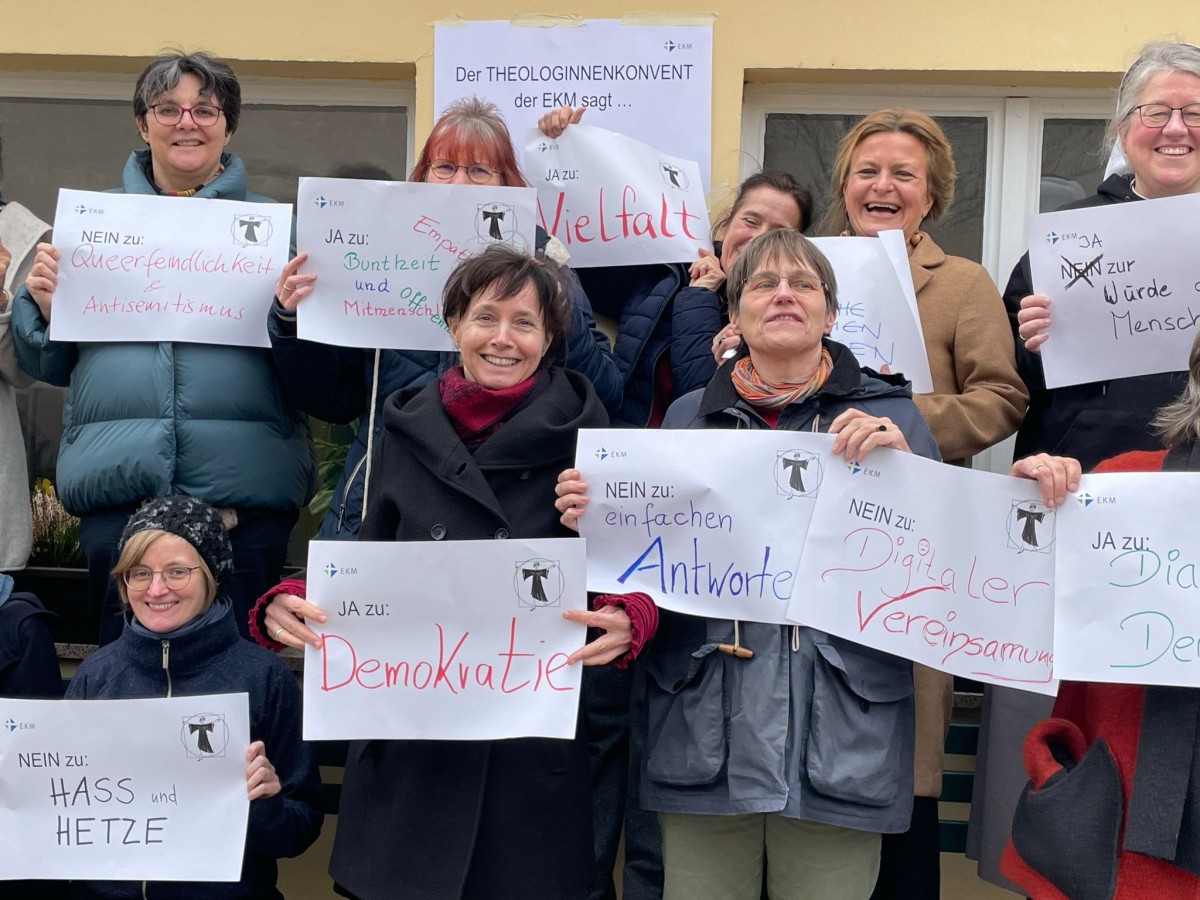 EKM
Der THEOLOGINNENKONVENT
der EKM sagt ...
EKM
NEIN zu:
Queerfeindlichkeit
&
Antisemitismus
EKM
JA zu:
Empat
Buntheit
und
Offen
Mitmenschl
EKM
JA zu:
Vielfalt
HE
EN
EN
EKM
JA
NEIN zur
Würde d
Mensch
EKM
NEIN zu:
einfachen
Antworte
EKM
NEIN zu:
Digitaler
Vereinsamung
EKM
JA zu:
Dia
De
EKM
JA zu:
Demokratie
EKM
NEIN zu:
HASS und
HETZE